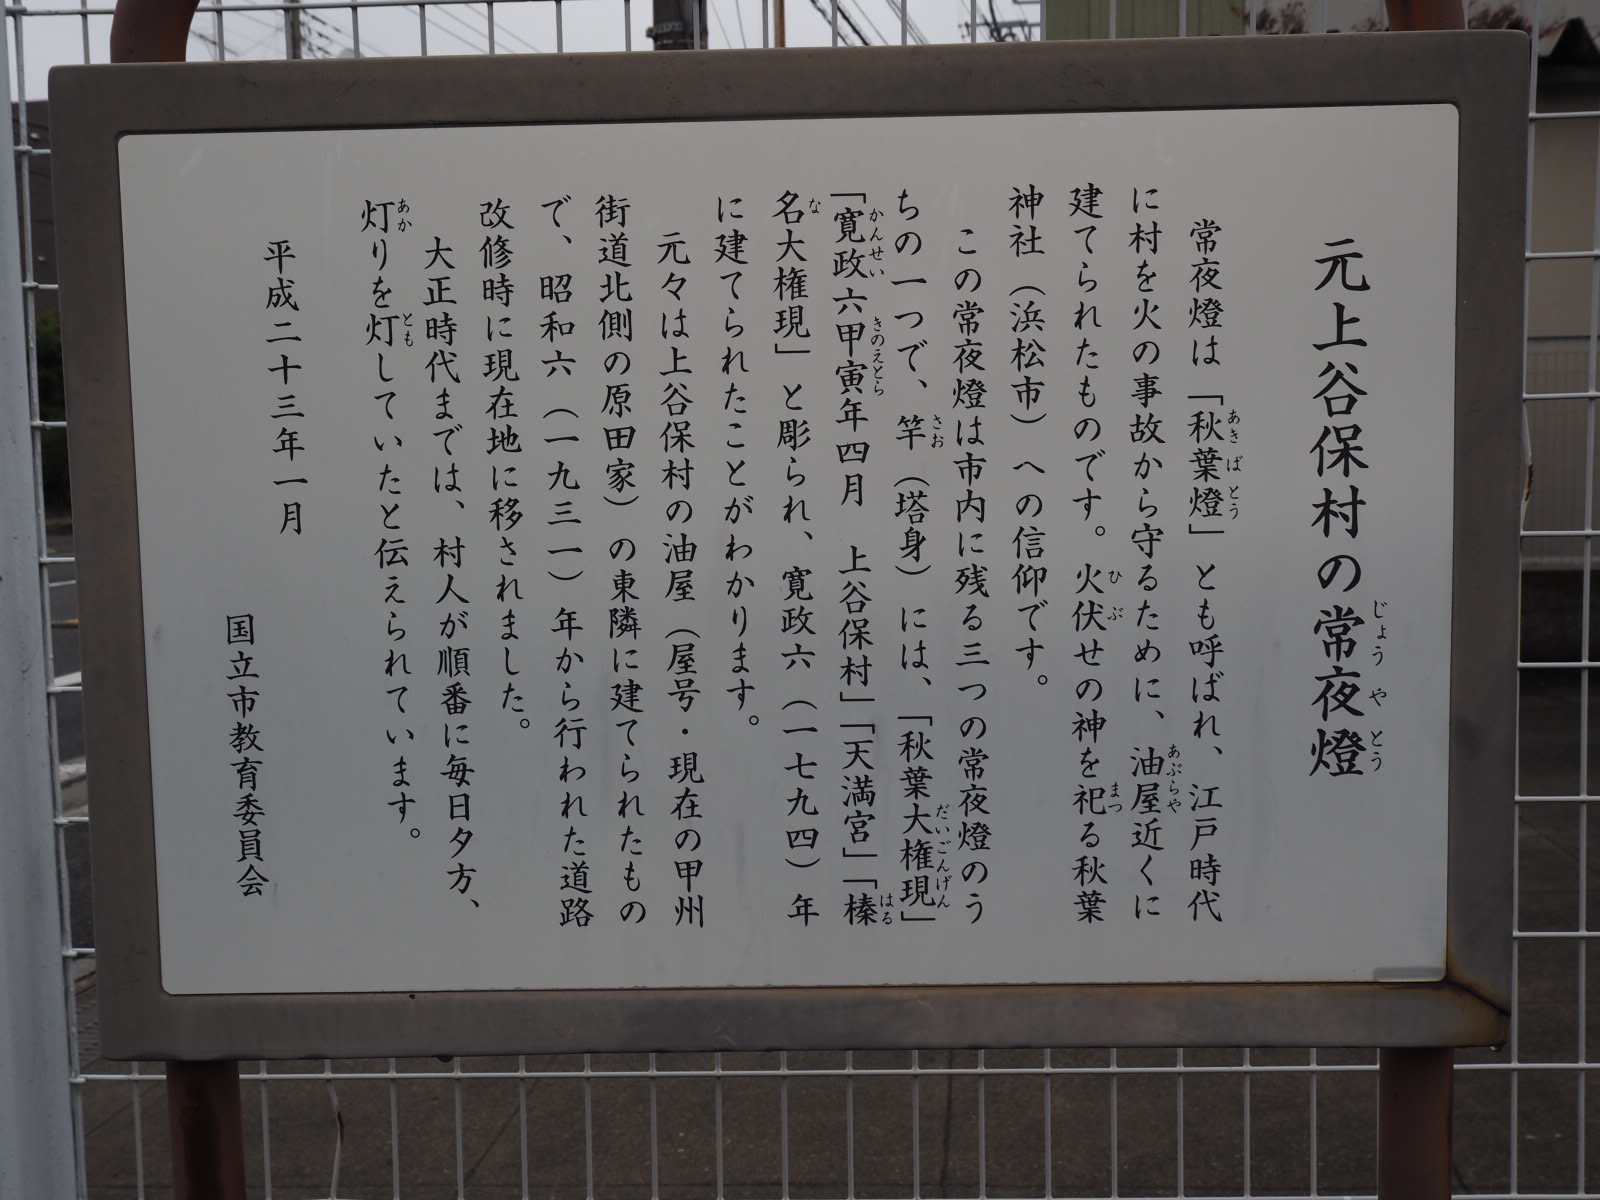 元上谷保村の常夜燈
常夜燈は「秋葉燈」とも呼ばれ、江戸時代
に村を火の事故から守るために、油屋近くに
建てられたものです。火伏せの神を祀る秋葉
神社（浜松市）への信仰です。
この常夜燈は市内に残る三つの常夜燈のう
ちの一つで、竿（塔身）には、「秋葉大権現」
「寛政六甲寅年四月　上谷保村」「天満宮」「榛
名大権現」と彫られ、寛政六（一七九四）年
に建てられたことがわかります。
元々は上谷保村の油屋（屋号・現在の甲州
街道北側の原田家）の東隣に建てられたもの
で、昭和六（一九三一）年から行われた道路
改修時に現在地に移されました。
大正時代までは、村人が順番に毎日夕方、
灯りを灯していたと伝えられています。
平成二十三年一月
国立市教育委員会